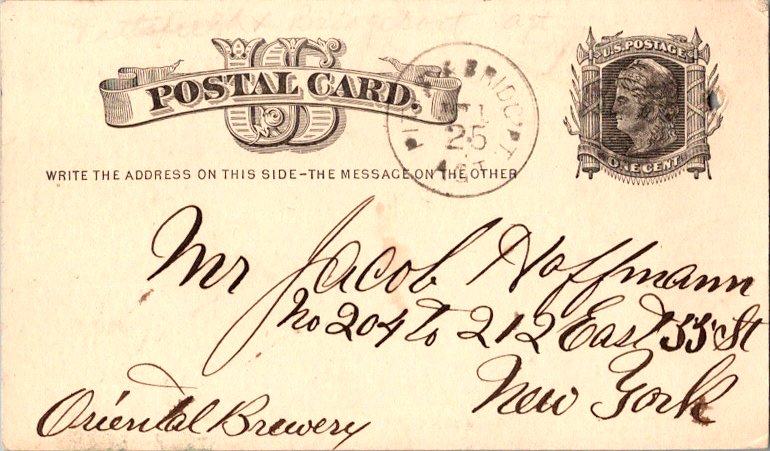 Pittsburgh & Bridgeport Agt
US
POSTAL CARD.
U.S. POSTAGE
ONE CENT
25
AGT.
WRITE THE ADDRESS ON THIS SIDE-THE MESSAGE ON THE OTHER
Mr Jacob Hoffmann
No 204 to 212 East 55 St
New York
Oriental Brewery